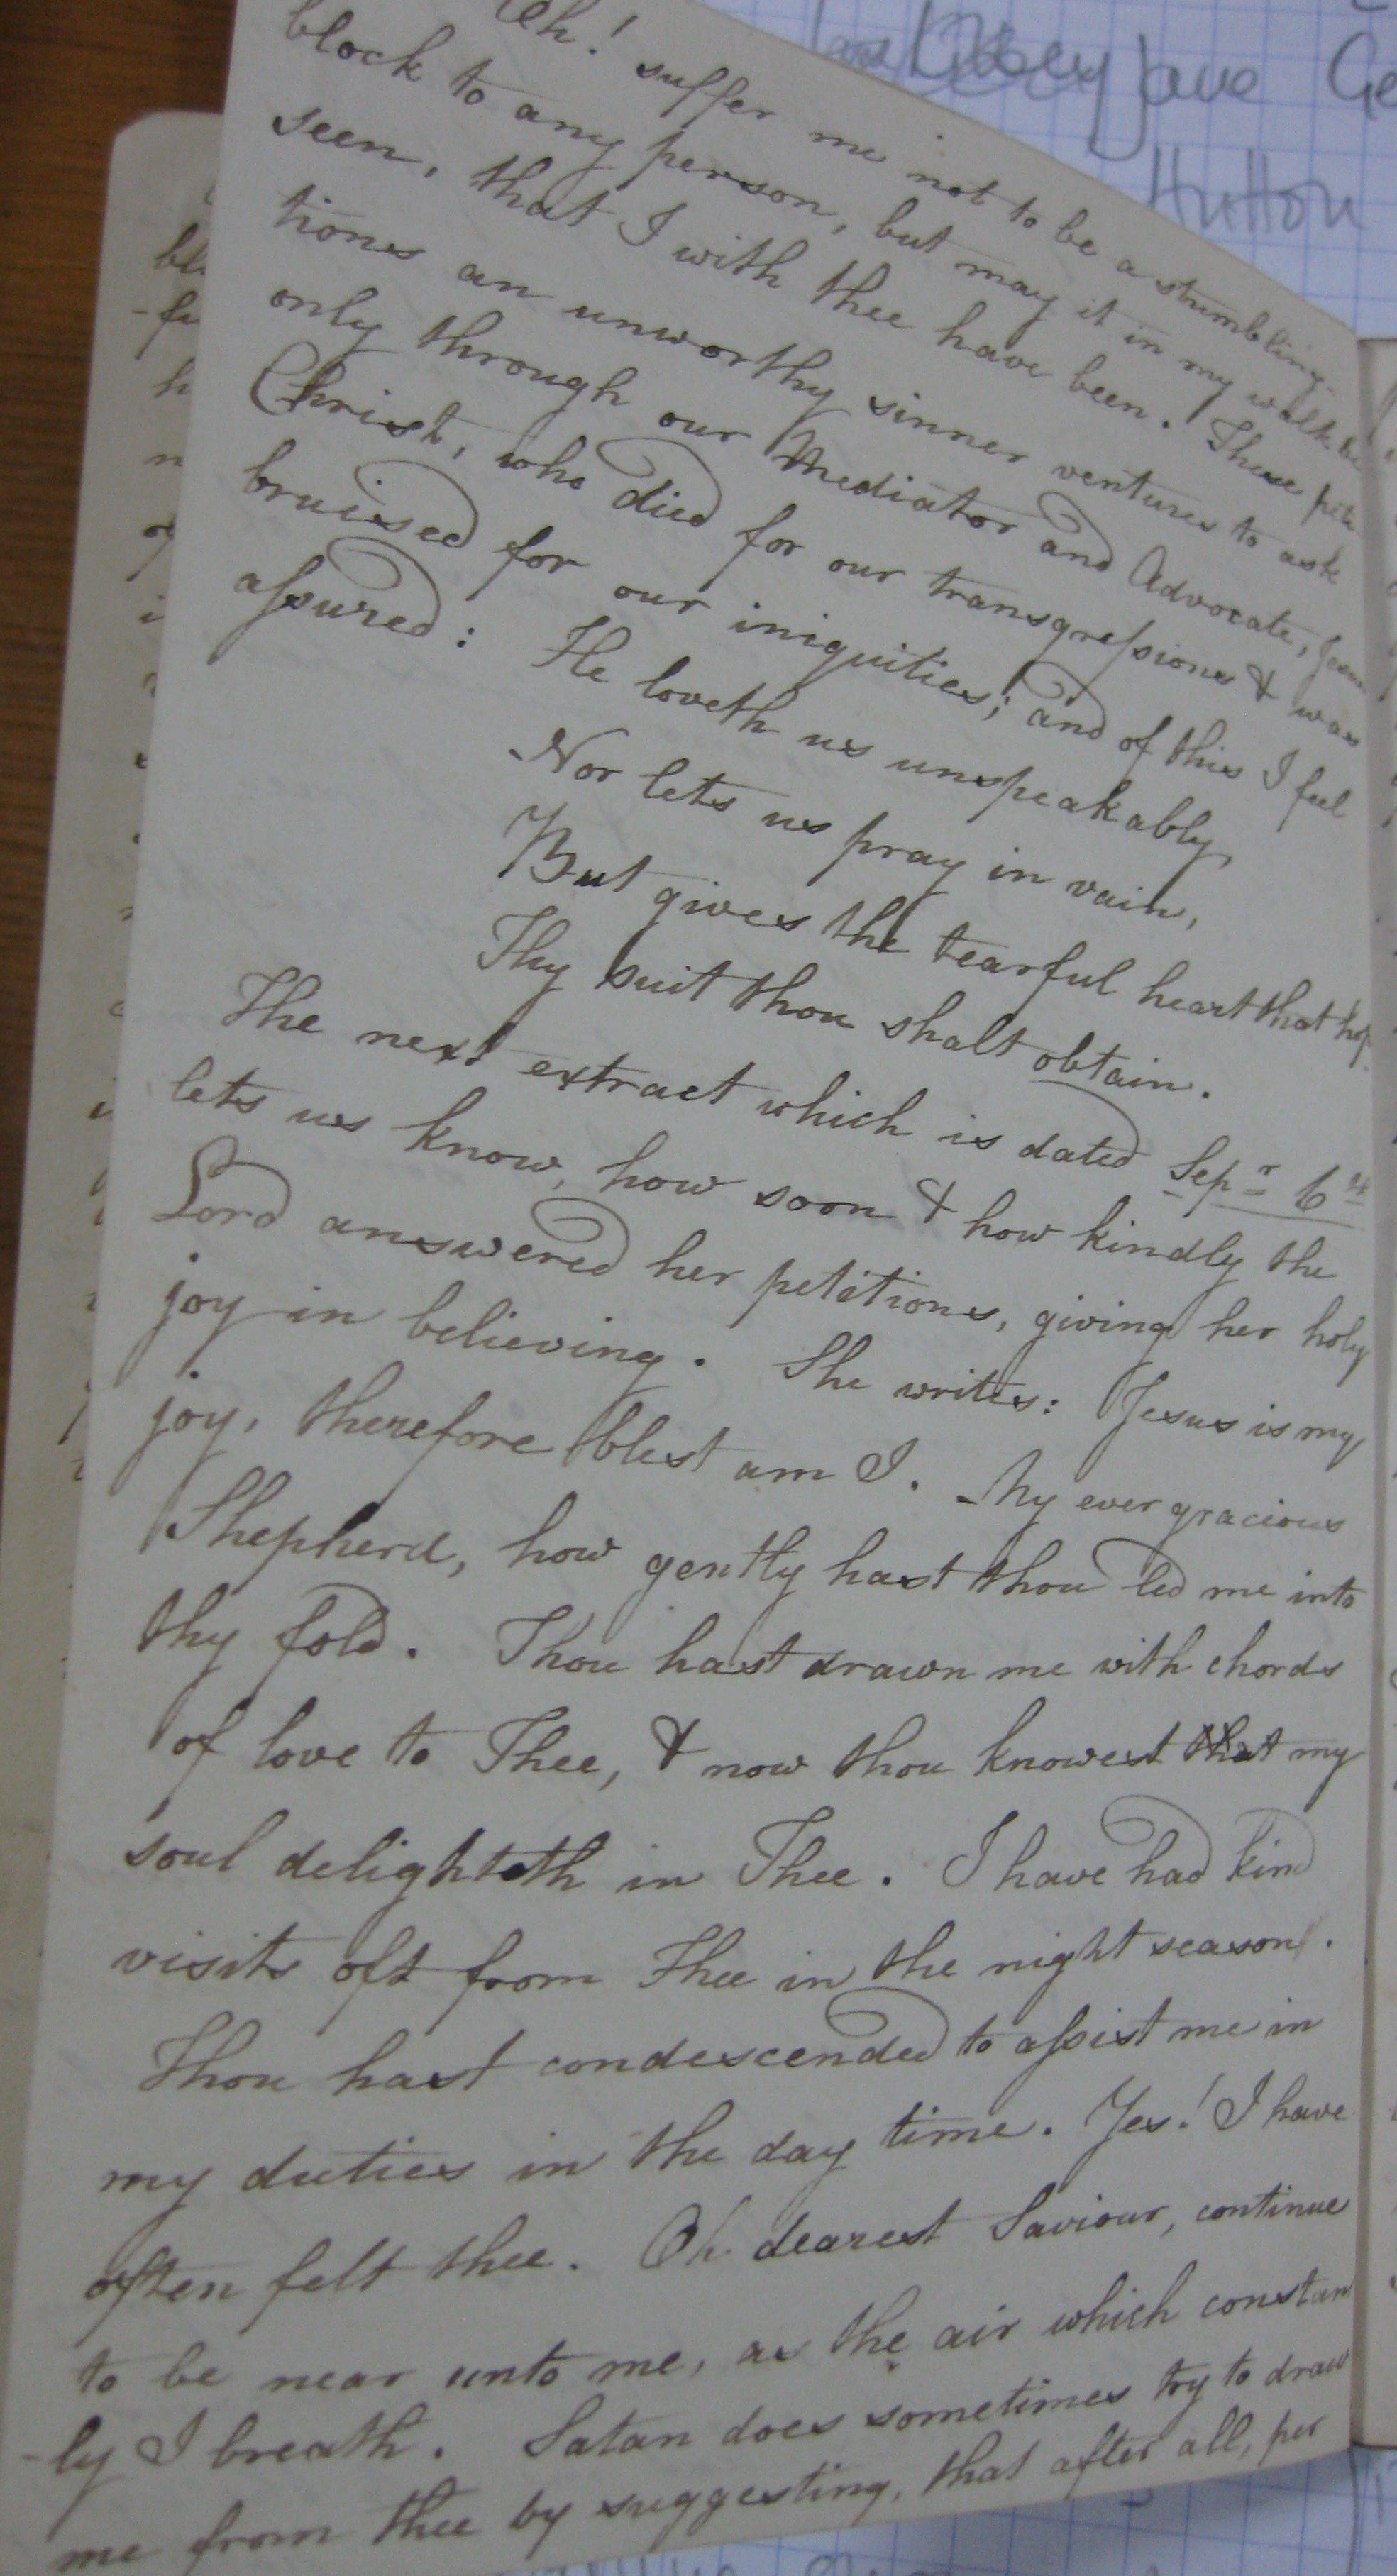 Oh! suffer me not to be a stumbling-
block to any person, but may it in my walk be
seen, that I with thee have been. These peti
tions an unworthy sinner ventures to ask
only through our Mediator and Advocate, Jesus
Christ, who died for our transgressions & was
bruised for our iniquities; and of this I feel
assured: He loveth us unspeakably,
Nor lets us pray in vain,
But gives the tearful heart that hop
Thy suit thou shalt obtain.
The next extract which is dated Sepr 6th
lets us know, how soon & how kindly the
Lord answered her petitions, giving her holy
joy in believing. She writes: Jesus is my
joy, therefore blest am I. My ever gracious
Shepherd, how gently hast thou led me into
thy fold. Thou hast drawn me with chords
of love to Thee, & now thou knowest that my
soul delighteth in Thee. I have had kind
visits oft from Thee in the night season.
Thou hast condescended to assist me in
my duties in the day time. Yes! I have
often felt thee. Oh dearest Saviour, continue
to be near unto me, as the air which constant
-ly I breath. Satan does sometimes try to draw
me from thee by suggesting, that after all, per
Jane Ge
Hutton